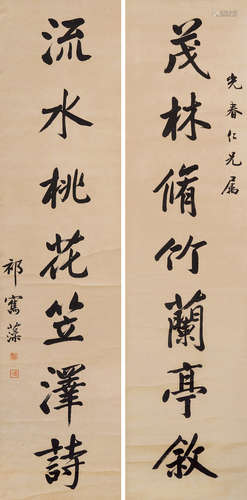 光春仁兄属
茂林脩竹蘭亭敘
流水桃花笠澤詩
祁寯藻